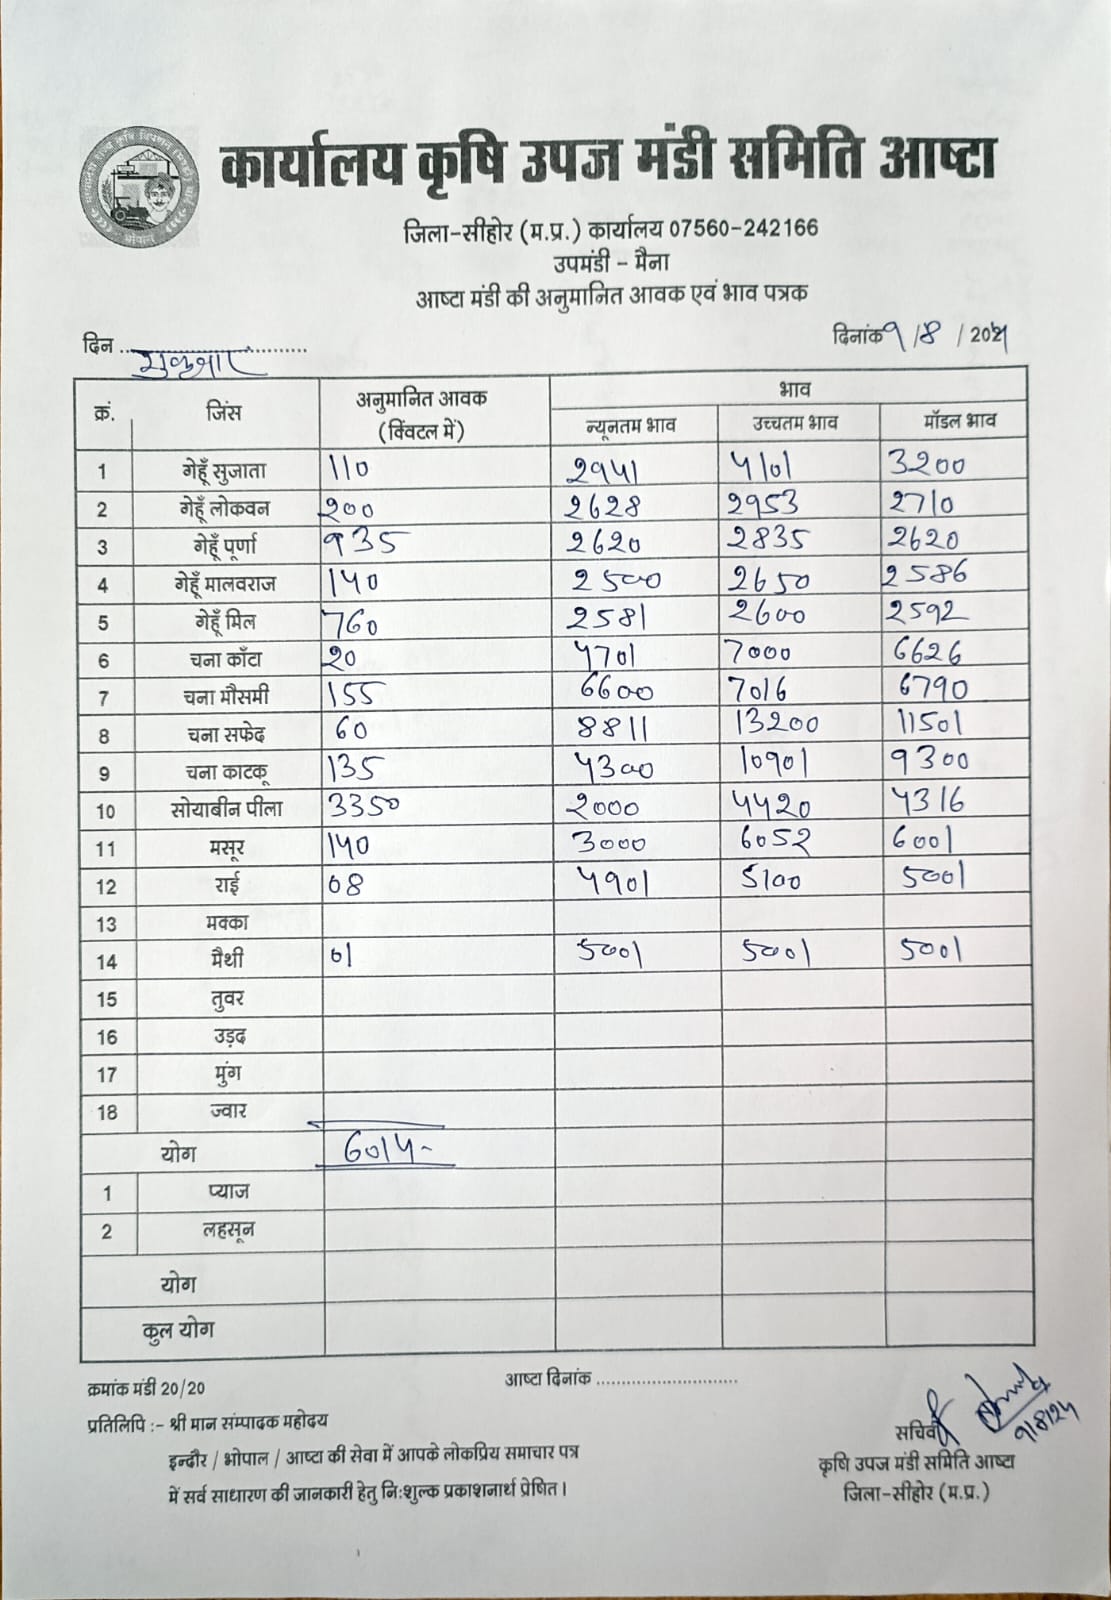 कार्यालय कृषि उपज मंडी समिति आष्टा
जिला-सीहोर (म.प्र.) कार्यालय 07560-242166
उपमंडी - मैना
आष्टा मंडी की अनुमानित आवक एवं भाव पत्रक
दिन .. शुक्रवार .......... दिनांक 9 / 8 / 2024
क्रं. जिंस अनुमानित आवक (क्विंटल में) भाव
न्यूनतम भाव उच्चतम भाव मॉडल भाव
1 गेहूँ सुजाता 110 2941 4101 3200
2 गेहूँ लोकवन 200 2628 2953 2710
3 गेहूँ पूर्णा 935 2620 2835 2620
4 गेहूँ मालवराज 140 2500 2650 2586
5 गेहूँ मिल 760 2581 2600 2592
6 चना काँटा 20 4701 7000 6626
7 चना मौसमी 155 6600 7016 6790
8 चना सफेद 60 8811 13200 11501
9 चना काटकू 135 4300 10901 9300
10 सोयाबीन पीला 3350 2000 4420 4316
11 मसूर 140 3000 6052 6001
12 राई 08 4901 5100 5001
13 मक्का
14 मैथी 01 5001 5001 5001
15 तुवर
16 उड़द
17 मुंग
18 ज्वार
योग 6014-
1 प्याज
2 लहसून
योग
कुल योग
क्रमांक मंडी 20/20 आष्टा दिनांक ..............................
प्रतिलिपि :- श्री मान संम्पादक महोदय
इन्दौर / भोपाल / आष्टा की सेवा में आपके लोकप्रिय समाचार पत्र
में सर्व साधारण की जानकारी हेतु नि:शुल्क प्रकाशनार्थ प्रेषित।
9/8/24
सचिव
कृषि उपज मंडी समिति आष्टा
जिला-सीहोर (म.प्र.)